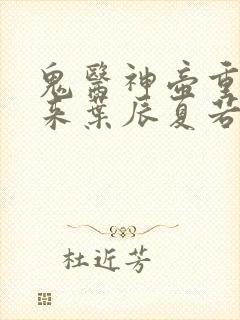 鬼醫神壺重
來葉辰夏若
杜近芳